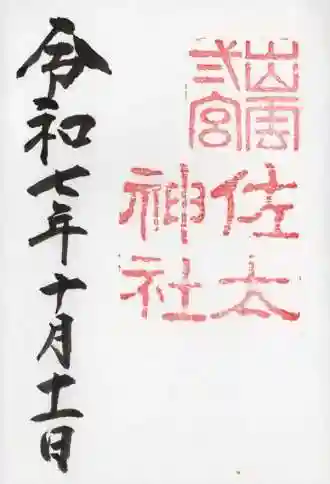 出雲
弍宮
佐太
神社
令和七年十月十一日